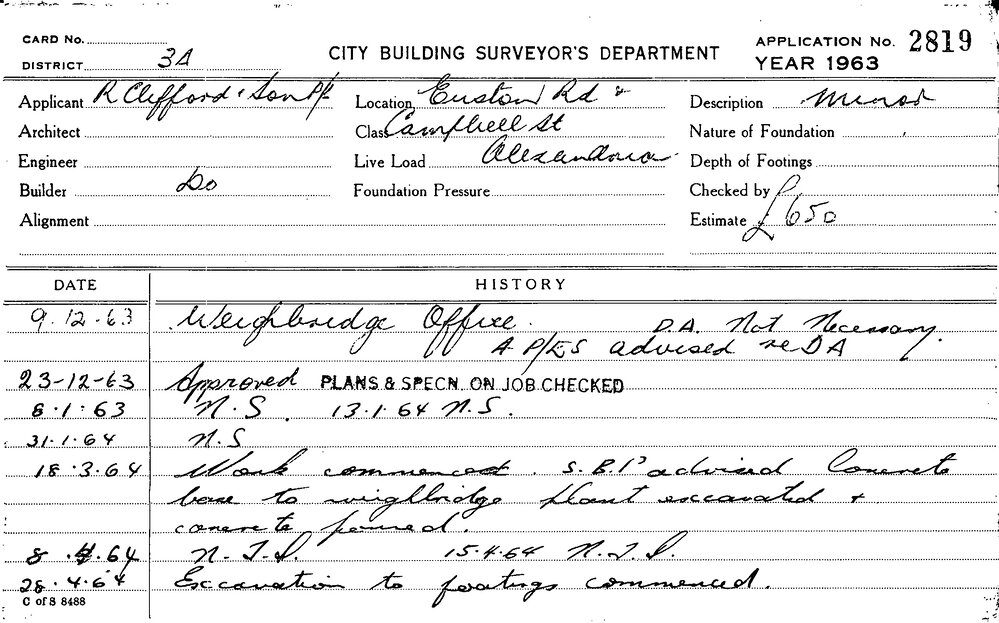 CARD No.
DISTRICT 3A
CITY BUILDING SURVEYOR'S DEPARTMENT
APPLICATION No. 2819
YEAR 1963
Applicant R Clifford & Son P/L Location Euston Rd & Description Minor
Architect Class Campbell St Nature of Foundation
Engineer Live Load Alexandria Depth of Footings
Builder Do Foundation Pressure Checked by
Alignment Estimate £650
DATE HISTORY
9.12.63 Weighbridge Office. D.A. Not Necessary.
A P/ES advised re DA
23-12-63 Approved PLANS & SPECN. ON JOB CHECKED
8.1.63 N.S. 13.1.64 N.S.
31.1.64 N.S
18.3.64 Work commenced. S.B.I. advised Concrete
base to weighbridge plant excavated +
concrete poured.
8.4.64 N.T.I. 15.4.64 N.T.I.
28.4.64 Excavation to footings commenced.
C of S 8488